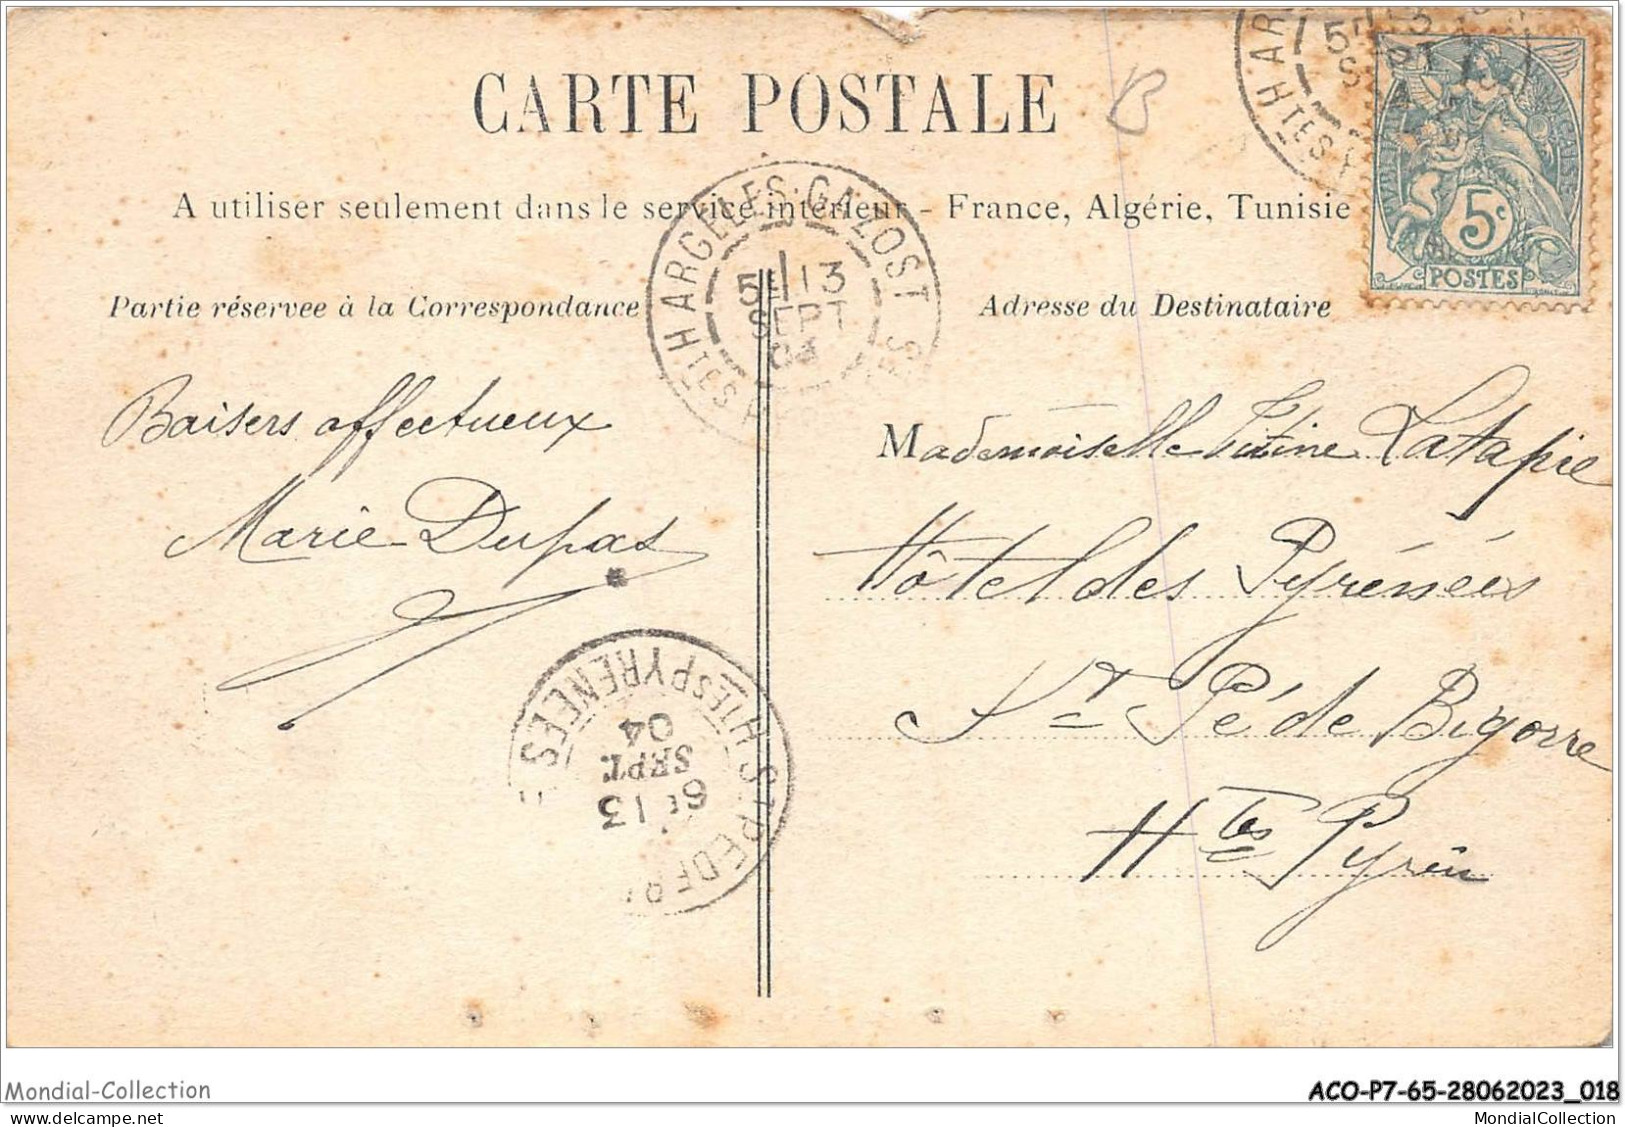 CARTE POSTALE
B
A utiliser seulement dans le service intérieur - France, Algérie, Tunisie
5c
POSTES
Partie réservee à la Correspondance
Adresse du Destinataire
ARGELES-GAZOST
HTES
5E 13
SEPT
Baisers affectueux
Marie Dupas
Mademoiselle Titine Latapie
Hôtel des Pyrénées
St Pé de Bigorre
Htes Pyrén
HTES PYRENEES
6E 13
SEPT.
04
Mondial-Collection
ACO-P7-65-28062023_018
MondialCollection
MondialCollection